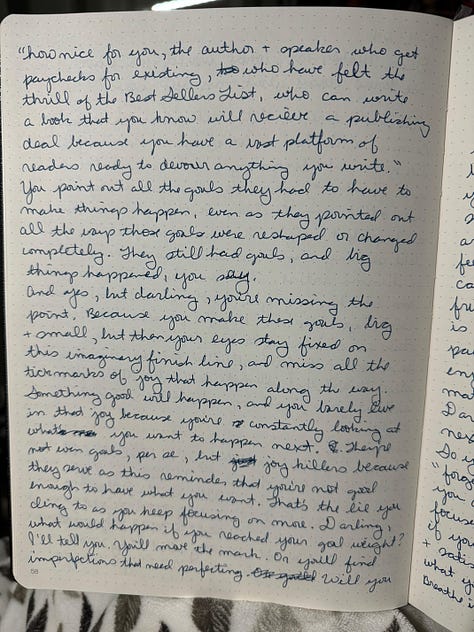 "how nice for you, the author + speaker who get
paychecks for existing, who have felt the
thrill of the Best Sellers List, who can write
a book that you know will recieve a publishing
deal because you have a vast platform of
readers ready to devour anything you write."
You point out all the goals they had to have to
make things happen, even as they pointed out
all the ways those goals were reshaped or changed
completely. They still had goals, and big
things happened, you say.
And yes, but darling, you're missing the
point. Because you make these goals, big
+ small, but then your eyes stay fixed on
this imaginary finish line, and miss all the
tickmarks of joy that happen along the way.
Something good will happen, and you barely live
in that joy because you're constantly looking at
what you want to happen next. They're
not even goals, per se, but joy killers because
they serve as this reminder that you're not good
enough to have what you want. That's the lie you
cling to as you keep focusing on more. Darling,
what would happen if you reached your goal weight?
I'll tell you. You'll move the mark. Or you'll find
imperfections that need perfecting. Will you
58